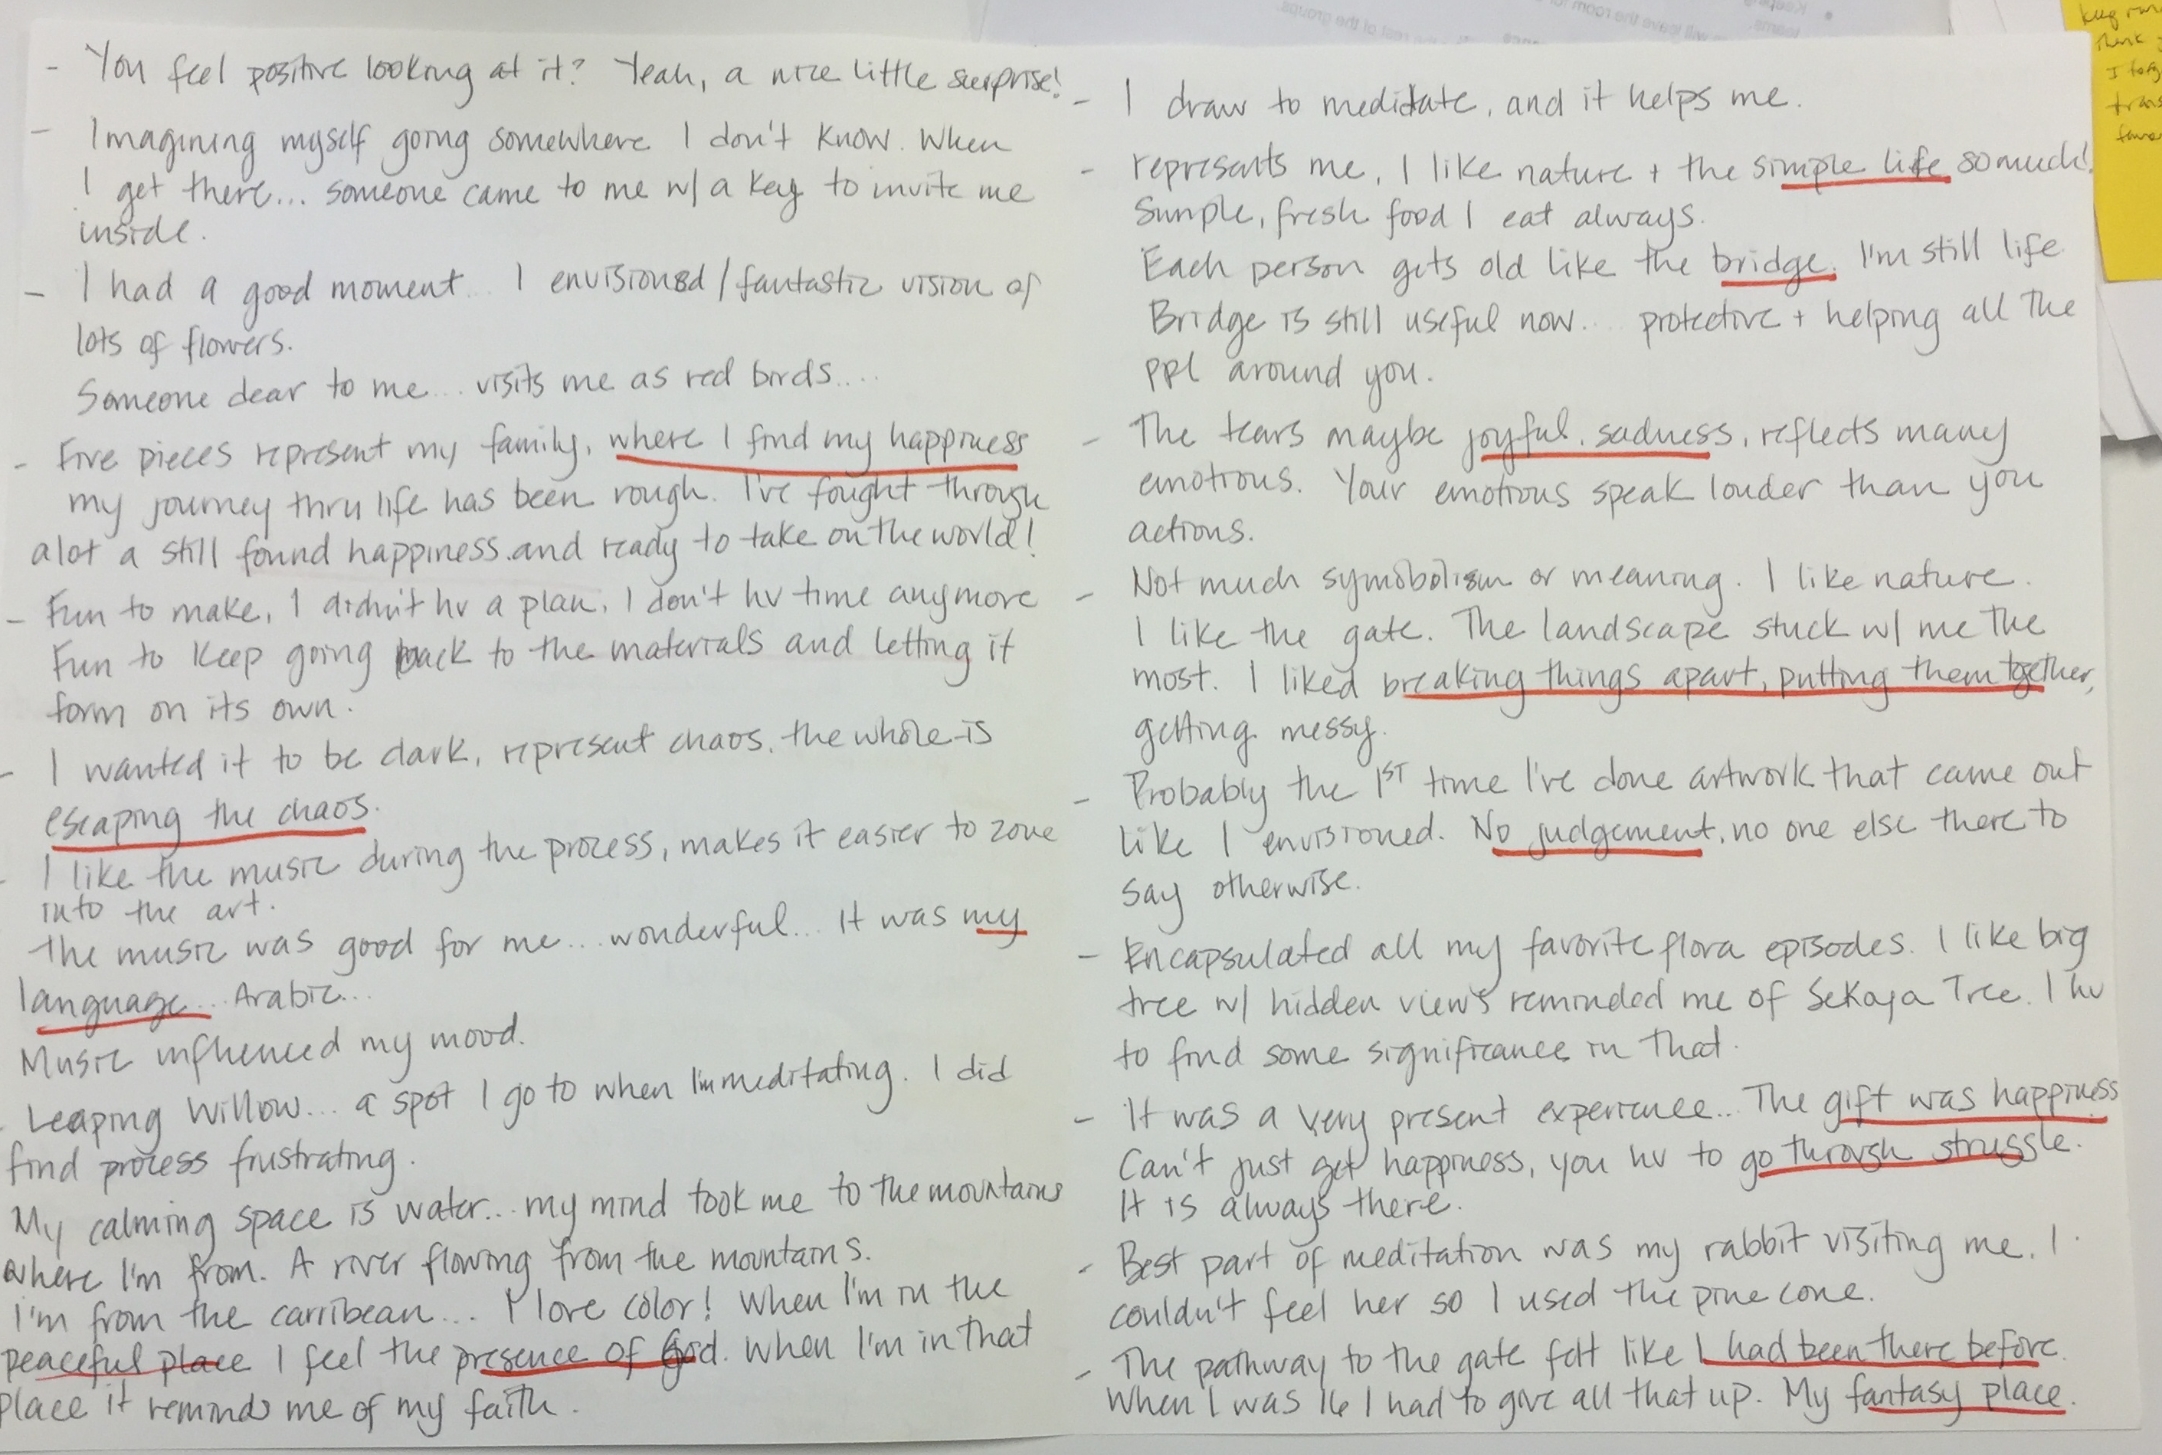 - You feel positive looking at it? Yeah, a nice little surprise!
- Imagining myself going somewhere I don't know. When
I get there... someone came to me w/ a key to invite me
inside.
- I had a good moment... I envisioned / fantastic vision of
lots of flowers.
Someone dear to me... visits me as red birds....
- Five pieces represent my family, where I find my happiness
my journey thru life has been rough. I've fought through
alot a still found happiness and ready to take on the world!
- Fun to make, I didn't hv a plan, I don't hv time anymore
Fun to keep going back to the materials and letting it
form on its own.
- I wanted it to be dark, represent chaos, the whole is
escaping the chaos.
- I like the music during the process, makes it easier to zone
into the art.
The music was good for me... wonderful... It was my
language... Arabic...
Music influenced my mood.
- Leaping Willow... a spot I go to when I'm meditating. I did
find process frustrating.
My calming space is water... my mind took me to the mountains
where I'm from. A river flowing from the mountains.
I'm from the carribean... I love color! When I'm in the
peaceful place I feel the presence of God. When I'm in that
place it reminds me of my faith.
- I draw to meditate, and it helps me.
- represents me, I like nature + the simple life so much!
Simple, fresh food I eat always.
Each person gets old like the bridge. I'm still life
Bridge is still useful now.... protective + helping all the
ppl around you.
- The tears maybe joyful, sadness, reflects many
emotions. Your emotions speak louder than you
actions.
- Not much symobolism or meaning. I like nature.
I like the gate. The landscape stuck w/ me the
most. I liked breaking things apart, putting them together,
getting messy.
- Probably the 1ST time I've done artwork that came out
like I envisioned. No judgement, no one else there to
say otherwise.
- Encapsulated all my favorite flora episodes. I like big
tree w/ hidden views reminded me of Sekaya Tree. I hv
to find some significance in that.
- It was a very present experience... The gift was happiness
Can't just get happiness, you hv to go through struggle.
It is always there.
- Best part of meditation was my rabbit visiting me. I
couldn't feel her so I used the pine cone.
- The pathway to the gate felt like I had been there before.
When I was 16 I had to give all that up. My fantasy place.